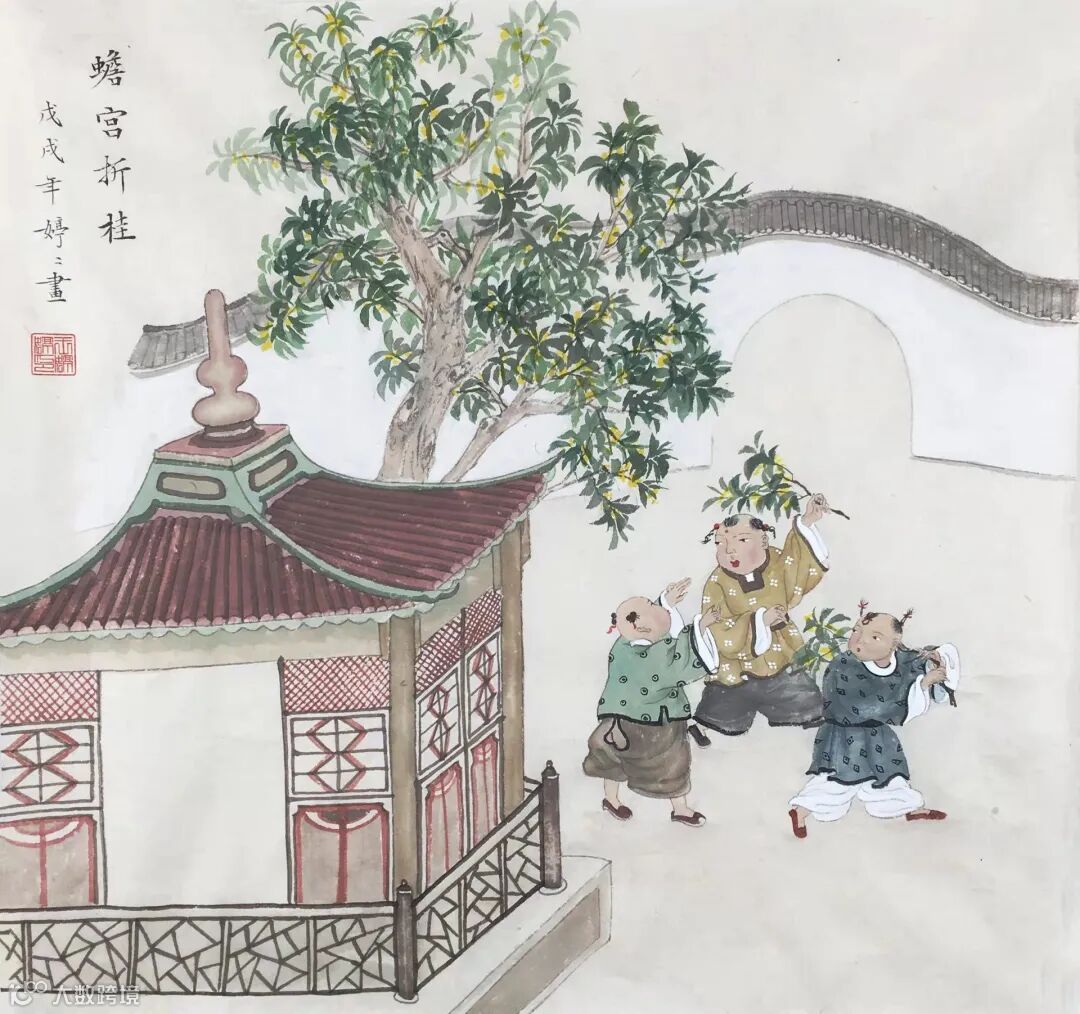 蟾宫折桂
戊戌年婷〻畫
大数跨境